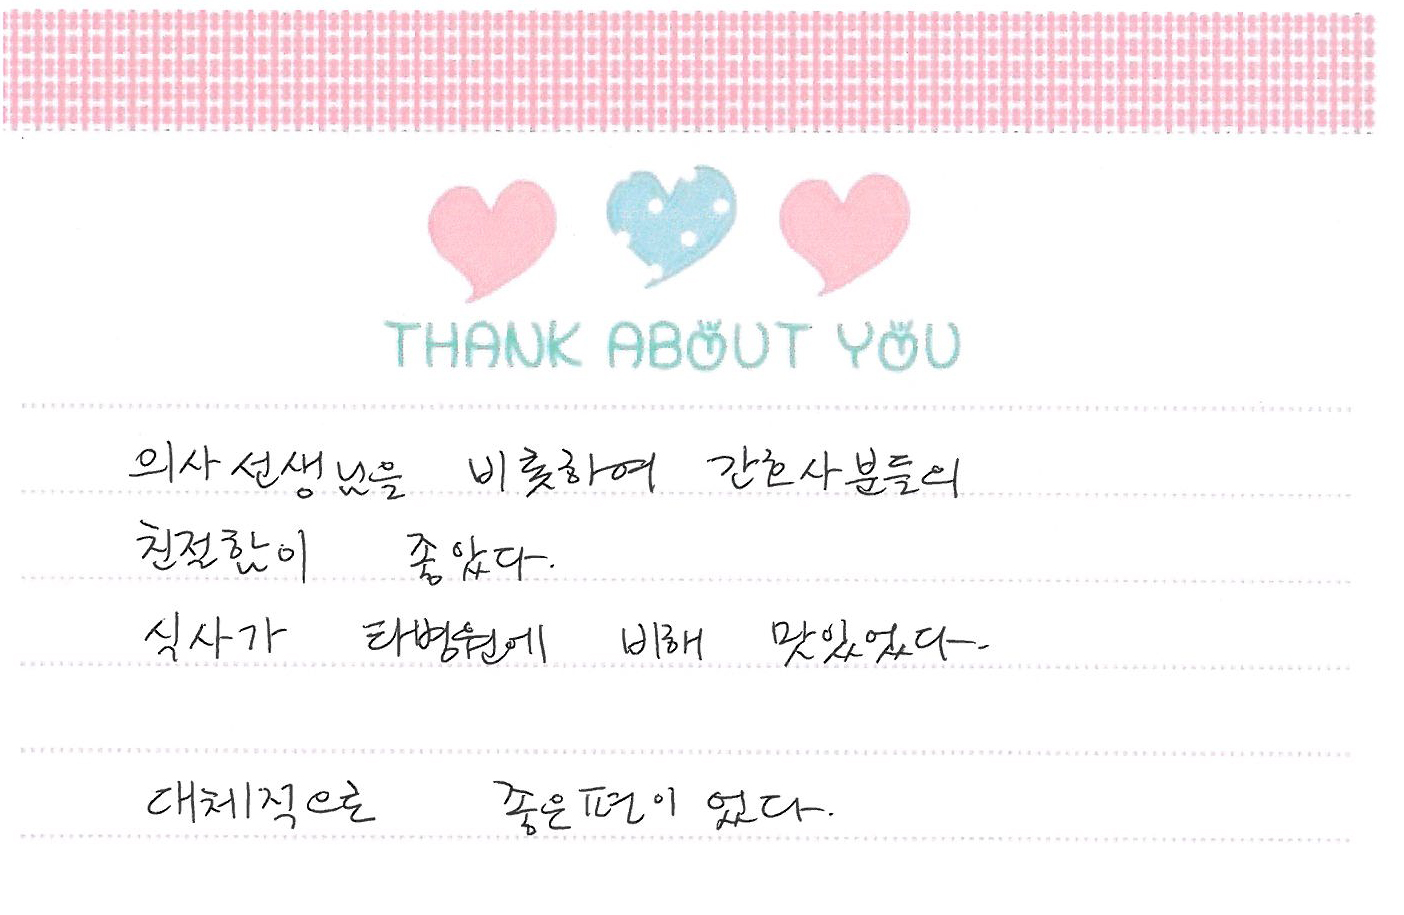 THANK ABOUT YOU
의사선생님을 비롯하여 간호사분들의
친절함이 좋았다.
식사가 타병원에 비해 맛있었다.
대체적으로 좋은편이었다.